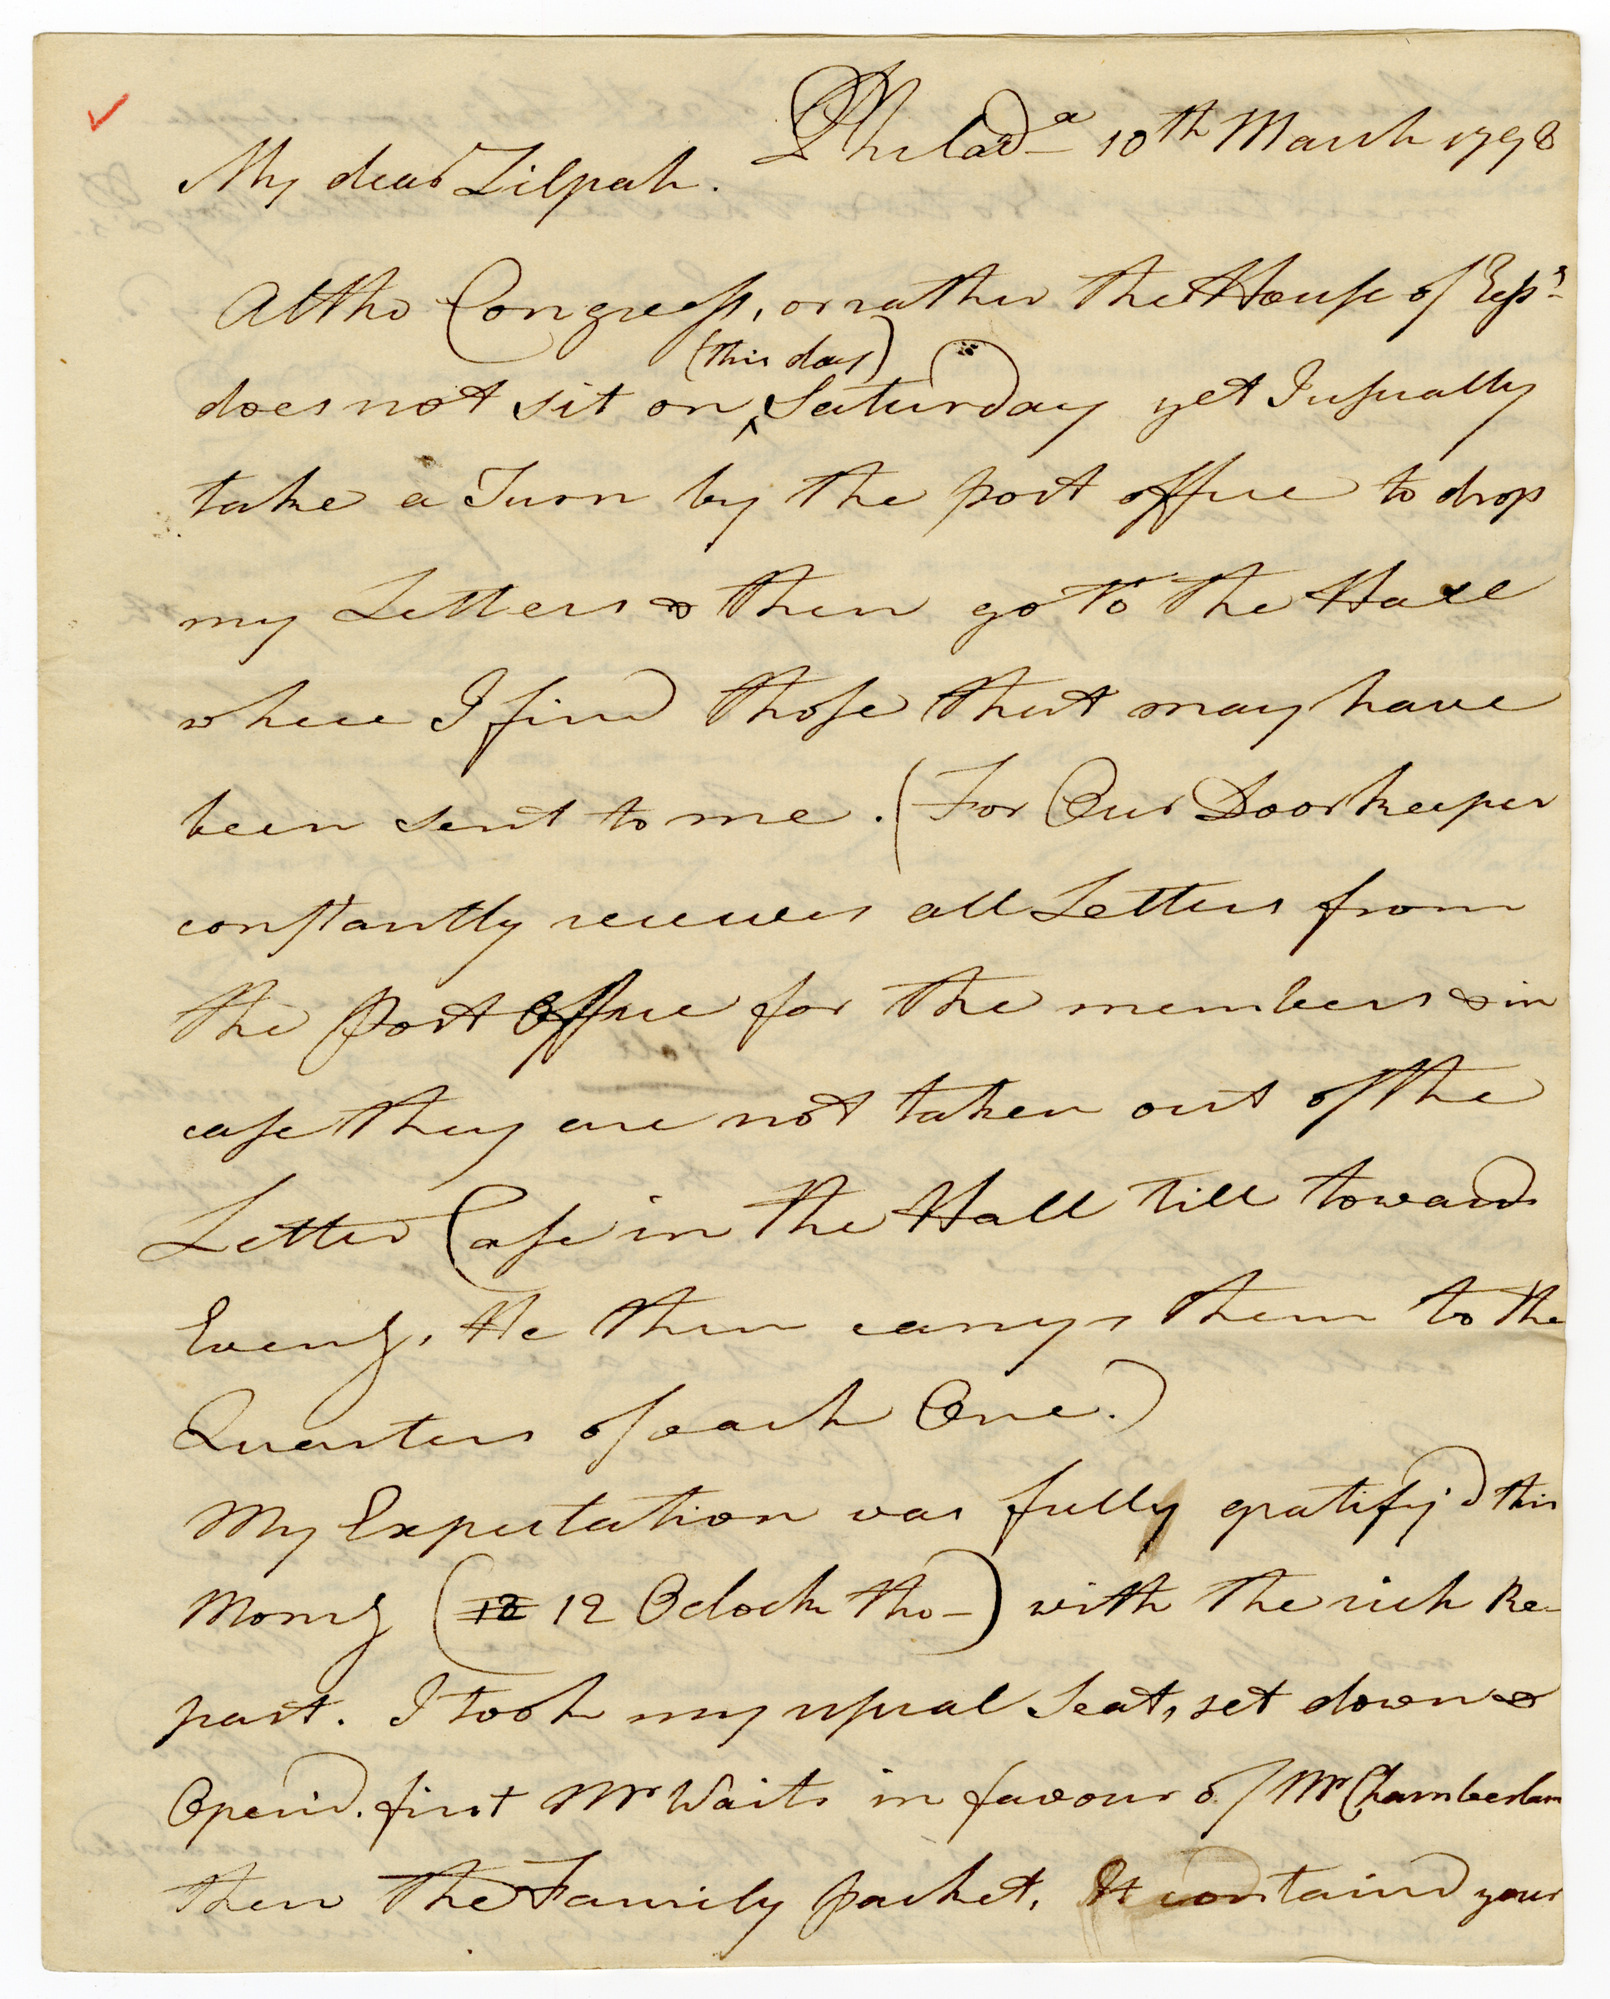 Philad^a 10th March 1798
My dear Zilpah.
Altho Congress, or rather the House of Reps^s
(this day)
does not sit on ^ Saturday yet I usually
take a Turn by the post office to drop
my Letters & then go to the Hall
where I find those that may have
been sent to me. (For Our Doorkeeper
constantly receives all Letters from
the Post Office for the members & in
case they are not taken out of the
Letter Case in the Hall till towards
Eveng, He then carrys them to the
Quarters of each One.)
My Expectation was fully gratify'd this
Morng (12 12 Oclock tho—) with the rich Re-
past. I took my usual Seat, set down &
Open'd. first Mr Waits in favour of Mr Chamberlain
then the Family packet, It contain'd your